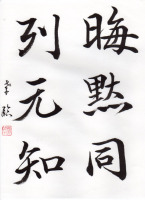 晦黙同
列元知